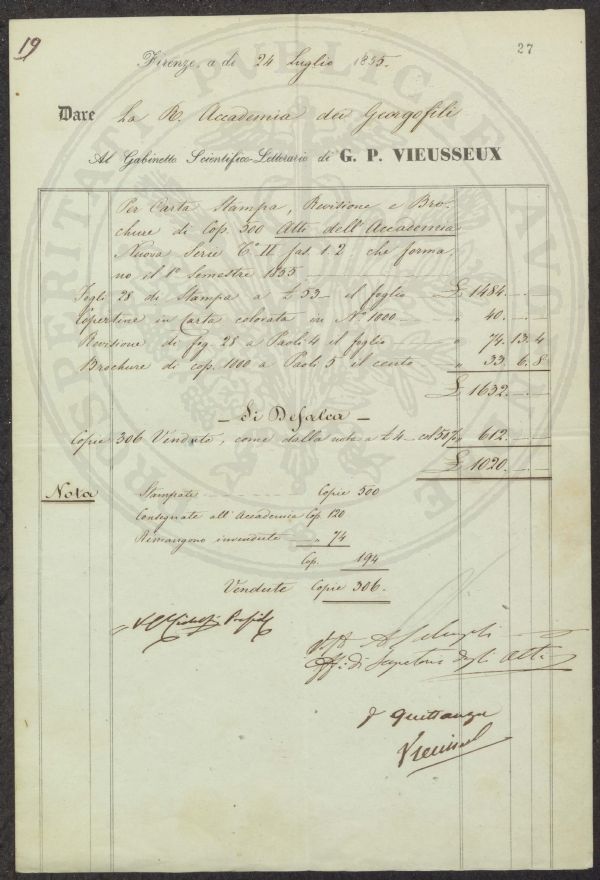 19
27
Firenze, a dì 24 Luglio 1855.
Dare La R. Accademia dei Georgofili
Al Gabinetto Scientifico-Letterario di G. P. VIEUSSEUX
Per Carta Stampa, Revisione e Bro-
chure di Cop. 500 Atti dell'Accademia
Nuova Serie T.° II fas. 1. 2 che forma,
no il 1° semestre 1855
Fogli 28 di Stampa a £ 53 — il foglio — £ 1484. — —
Copertine in Carta colorata in N° 1000 — " 40. — —
Revisione di fog. 28 a Paoli 4 il foglio — " 74. 13. 4
Brochure di cop. 1000 a Paoli 5 il cento " 33. 6. 8
£ 1632. — —
— Si Defalca —
Copie 306 Vendute, come dalla nota a £ 4 — col 50 % " 612. — —
£ 1020. — —
Nota Stampate Copie 500
Consegnate all'Accademia Cop. 120
Rimangono invendute — " 74
Cop. 194
Vendute Copie 306.
Segretario degli Atti
p Quittanza
Vieusseux